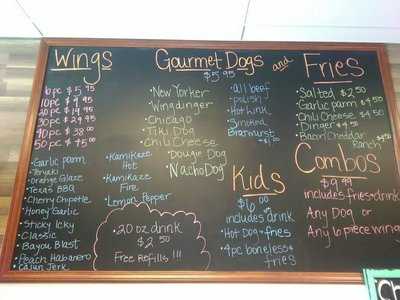 Wings
6pc $5.95
10pc $9.95
20pc $19.95
30pc $29.95
40pc $38.00
50pc $45.00
• Garlic parm
• Teriaki
• Orange Glaze
• Texas BBQ
• Cherry Chipotle
• Honey Garlic
• Sticky Icky
• Classic
• Bayou Blast
• Peach Habanero
• Cajun Jerk
• KamiKaze Hot
• KamiKaze Fire
• Lemon Pepper
Gourmet Dogs and
$5.95
• New Yorker
• Wingdinger
• Chicago
• Tiki Dog
• Chili Cheese
• Dougie Dog
• Nacho Dog
• all beef
• polish
• Hot Link
• Smoked
Bratwurst
Fries
• Salted $2.50
• Garlic parm $4.50
• Chili Cheese $4.50
• Dinger $4.50
• Bacon Cheddar
Ranch
Kids
$6.00
includes drink
• Hot Dog + fries
• 4pc boneless +
fries
Combos
$9.99
includes fries + drink
Any Dog or
Any 6 piece wing
• 20 oz drink
$2.50
Free Refills !!!